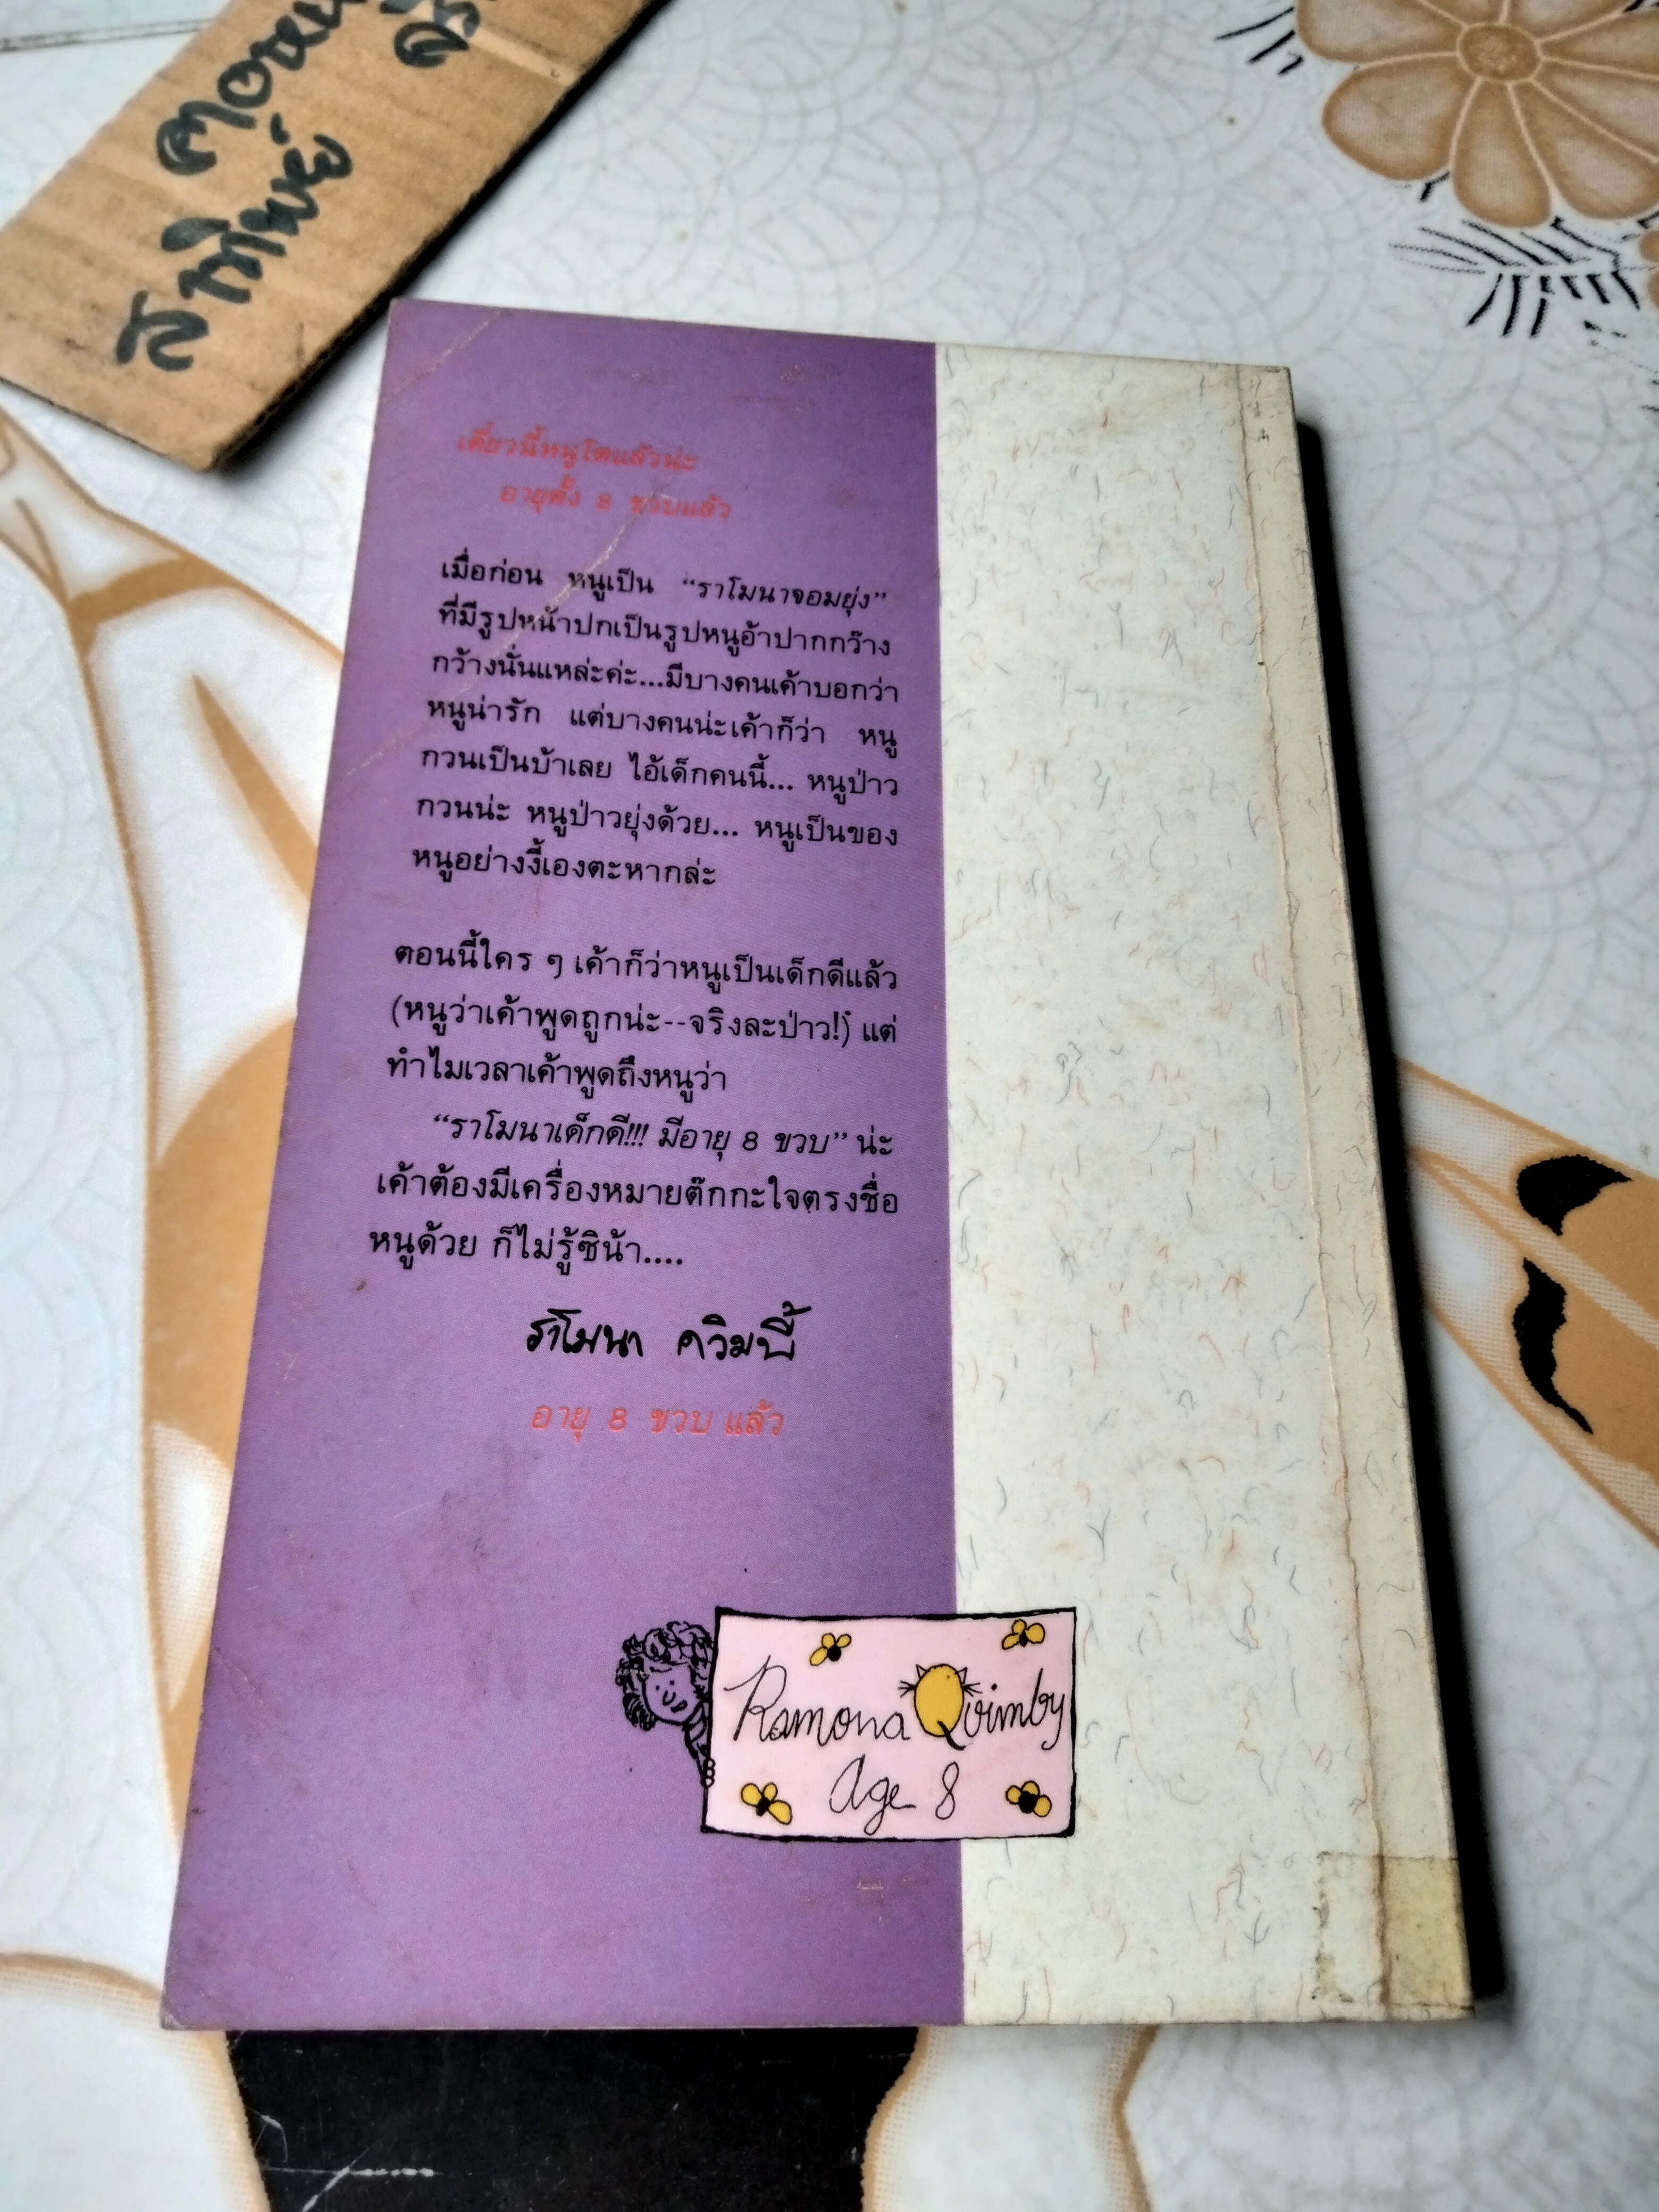 สติโพธิ์
เดี๋ยวนี้หนูโตแล้วน่ะ
อายุตั้ง 8 ขวบแล้ว
เมื่อก่อน หนูเป็น “ราโมนาจอมยุ่ง”
ที่มีรูปหน้าปกเป็นรูปหนูอ้าปากกว๊าง
กว้างนั่นแหล่ะค่ะ...มีบางคนเค้าบอกว่า
หนูน่ารัก แต่บางคนน่ะเค้าก็ว่า หนู
กวนเป็นบ้าเลย ไอ้เด็กคนนี้... หนูป่าว
กวนน่ะ หนูป่าวยุ่งด้วย... หนูเป็นของ
หนูอย่างงี้เองตะหากล่ะ
ตอนนี้ใคร ๆ เค้าก็ว่าหนูเป็นเด็กดีแล้ว
(หนูว่าเค้าพูดถูกน่ะ--จริงละป่าว!) แต่
ทำไมเวลาเค้าพูดถึงหนูว่า
“ราโมนาเด็กดี!!! มีอายุ 8 ขวบ” น่ะ
เค้าต้องมีเครื่องหมายต๊กกะใจตรงชื่อ
หนูด้วย ก็ไม่รู้ซิน้า....
ราโมนา ควิมบี้
อายุ 8 ขวบ แล้ว
Ramona Quimby
Age 8